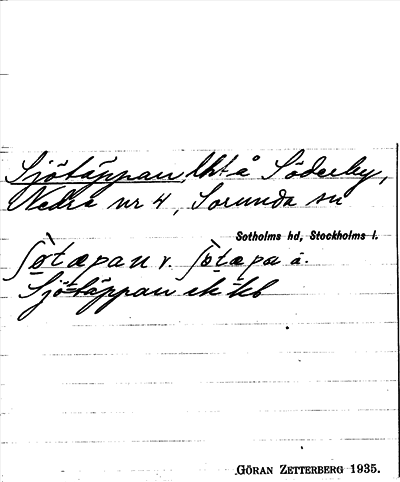 Sjötäppan, lht å Söderby,
Nedre nr 4, Sorunda sn
Sotholms hd, Stockholms l.
ʃø̀tæpan v. ʃø̀tæpa å.
Sjötäppan ek kb
GÖRAN ZETTERBERG 1935.